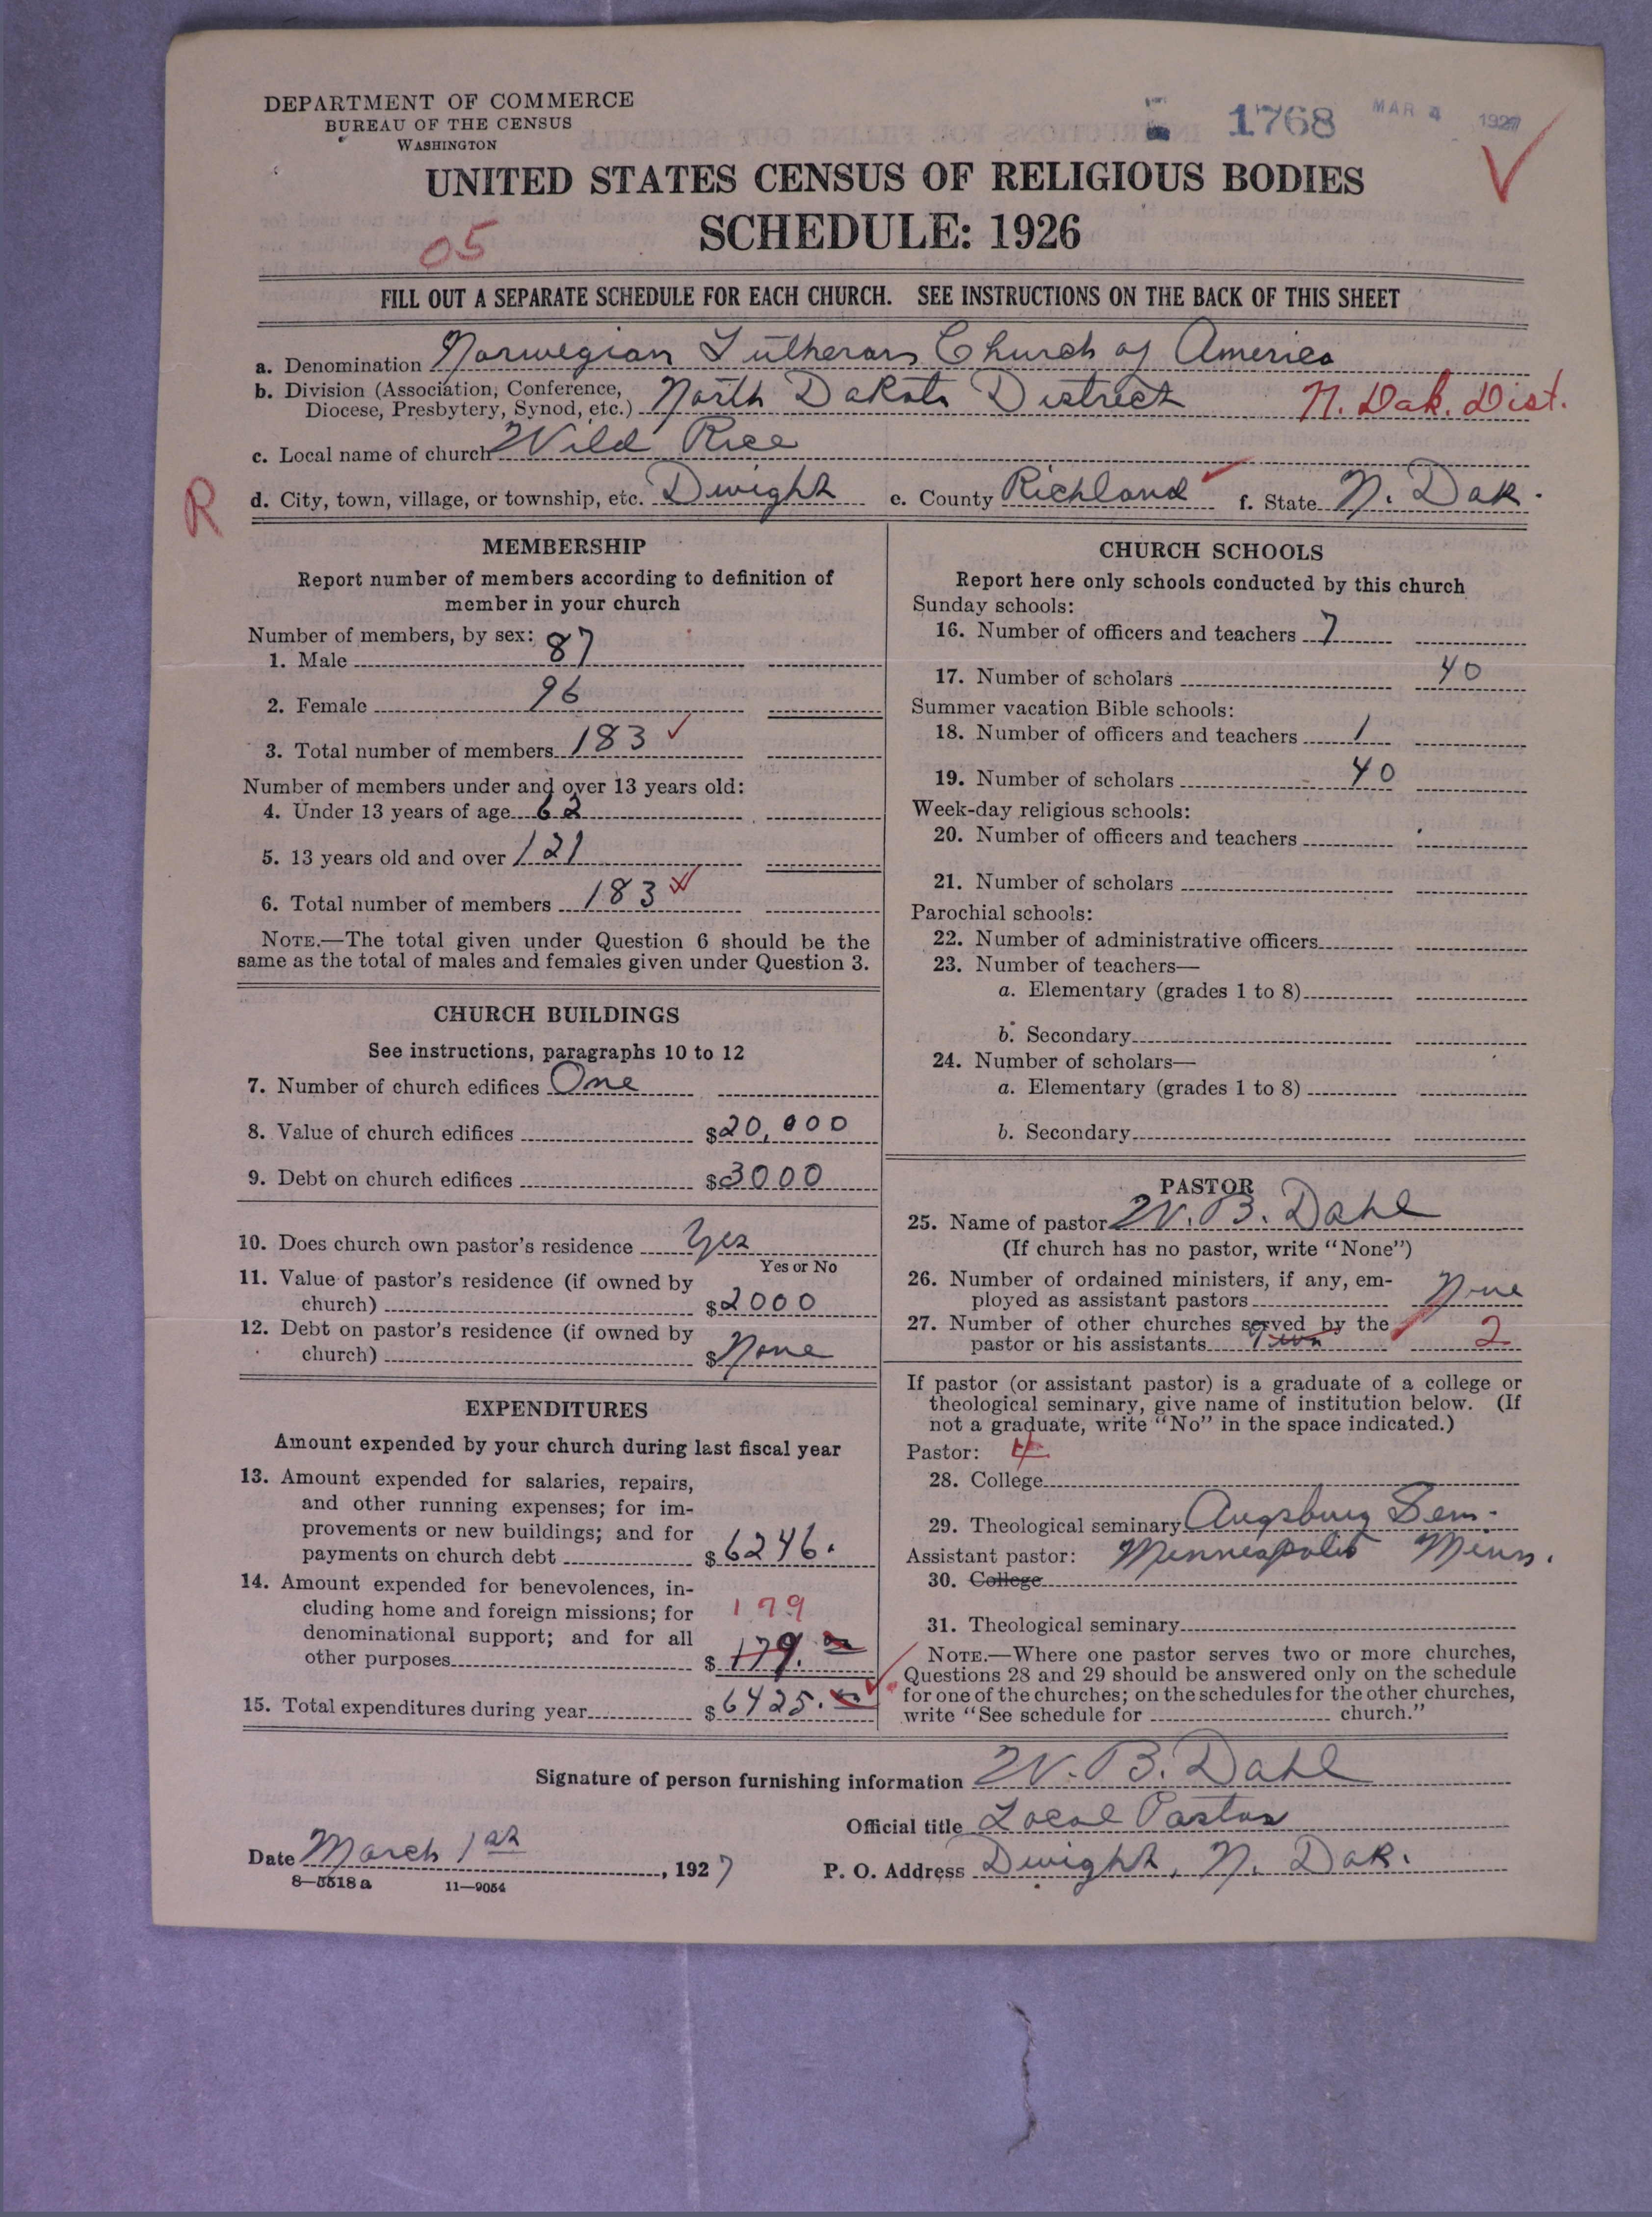 DEPARTMENT OF COMMERCE
BUREAU OF THE CENSUS
WASHINGTON
1768
MAR 4 1927
UNITED STATES CENSUS OF RELIGIOUS BODIES
SCHEDULE: 1926
05
FILL OUT A SEPARATE SCHEDULE FOR EACH CHURCH. SEE INSTRUCTIONS ON THE BACK OF THIS SHEET
a. Denomination Norwegian Lutheran Church of America
b. Division (Association, Conference,
Diocese, Presbytery, Synod, etc.) North Dakota District N. Dak. Dist.
c. Local name of church Wild Rice
R
d. City, town, village, or township, etc. Dwight e. County Richland f. State N. Dak.
MEMBERSHIP
Report number of members according to definition of
member in your church
Number of members, by sex:
1. Male 87
2. Female 96
3. Total number of members 183
Number of members under and over 13 years old:
4. Under 13 years of age 62
5. 13 years old and over 121
6. Total number of members 183
NOTE.—The total given under Question 6 should be the
same as the total of males and females given under Question 3.
CHURCH BUILDINGS
See instructions, paragraphs 10 to 12
7. Number of church edifices One
8. Value of church edifices $20,000
9. Debt on church edifices $3000
10. Does church own pastor's residence Yes
Yes or No
11. Value of pastor's residence (if owned by
church) $2000
12. Debt on pastor's residence (if owned by
church) $None
EXPENDITURES
Amount expended by your church during last fiscal year
13. Amount expended for salaries, repairs,
and other running expenses; for im-
provements or new buildings; and for
payments on church debt $6246.
14. Amount expended for benevolences, in-
cluding home and foreign missions; for 179
denominational support; and for all
other purposes $179.
15. Total expenditures during year $6425.
CHURCH SCHOOLS
Report here only schools conducted by this church
Sunday schools:
16. Number of officers and teachers 7
17. Number of scholars 40
Summer vacation Bible schools:
18. Number of officers and teachers 1
19. Number of scholars 40
Week-day religious schools:
20. Number of officers and teachers
21. Number of scholars
Parochial schools:
22. Number of administrative officers
23. Number of teachers—
a. Elementary (grades 1 to 8)
b. Secondary
24. Number of scholars—
a. Elementary (grades 1 to 8)
b. Secondary
PASTOR
25. Name of pastor W. B. Dahl
(If church has no pastor, write "None")
26. Number of ordained ministers, if any, em-
ployed as assistant pastors None
27. Number of other churches served by the
pastor or his assistants Two 2
If pastor (or assistant pastor) is a graduate of a college or
theological seminary, give name of institution below. (If
not a graduate, write "No" in the space indicated.)
Pastor:
28. College
29. Theological seminary Augsburg Sem.
Assistant pastor: Minneapolis Minn.
30. College
31. Theological seminary
NOTE.—Where one pastor serves two or more churches,
Questions 28 and 29 should be answered only on the schedule
for one of the churches; on the schedules for the other churches,
write "See schedule for church."
Signature of person furnishing information W. B. Dahl
Official title Local Pastor
Date March 1st, 1927 P. O. Address Dwight, N. Dak.
8—5518a 11—9054